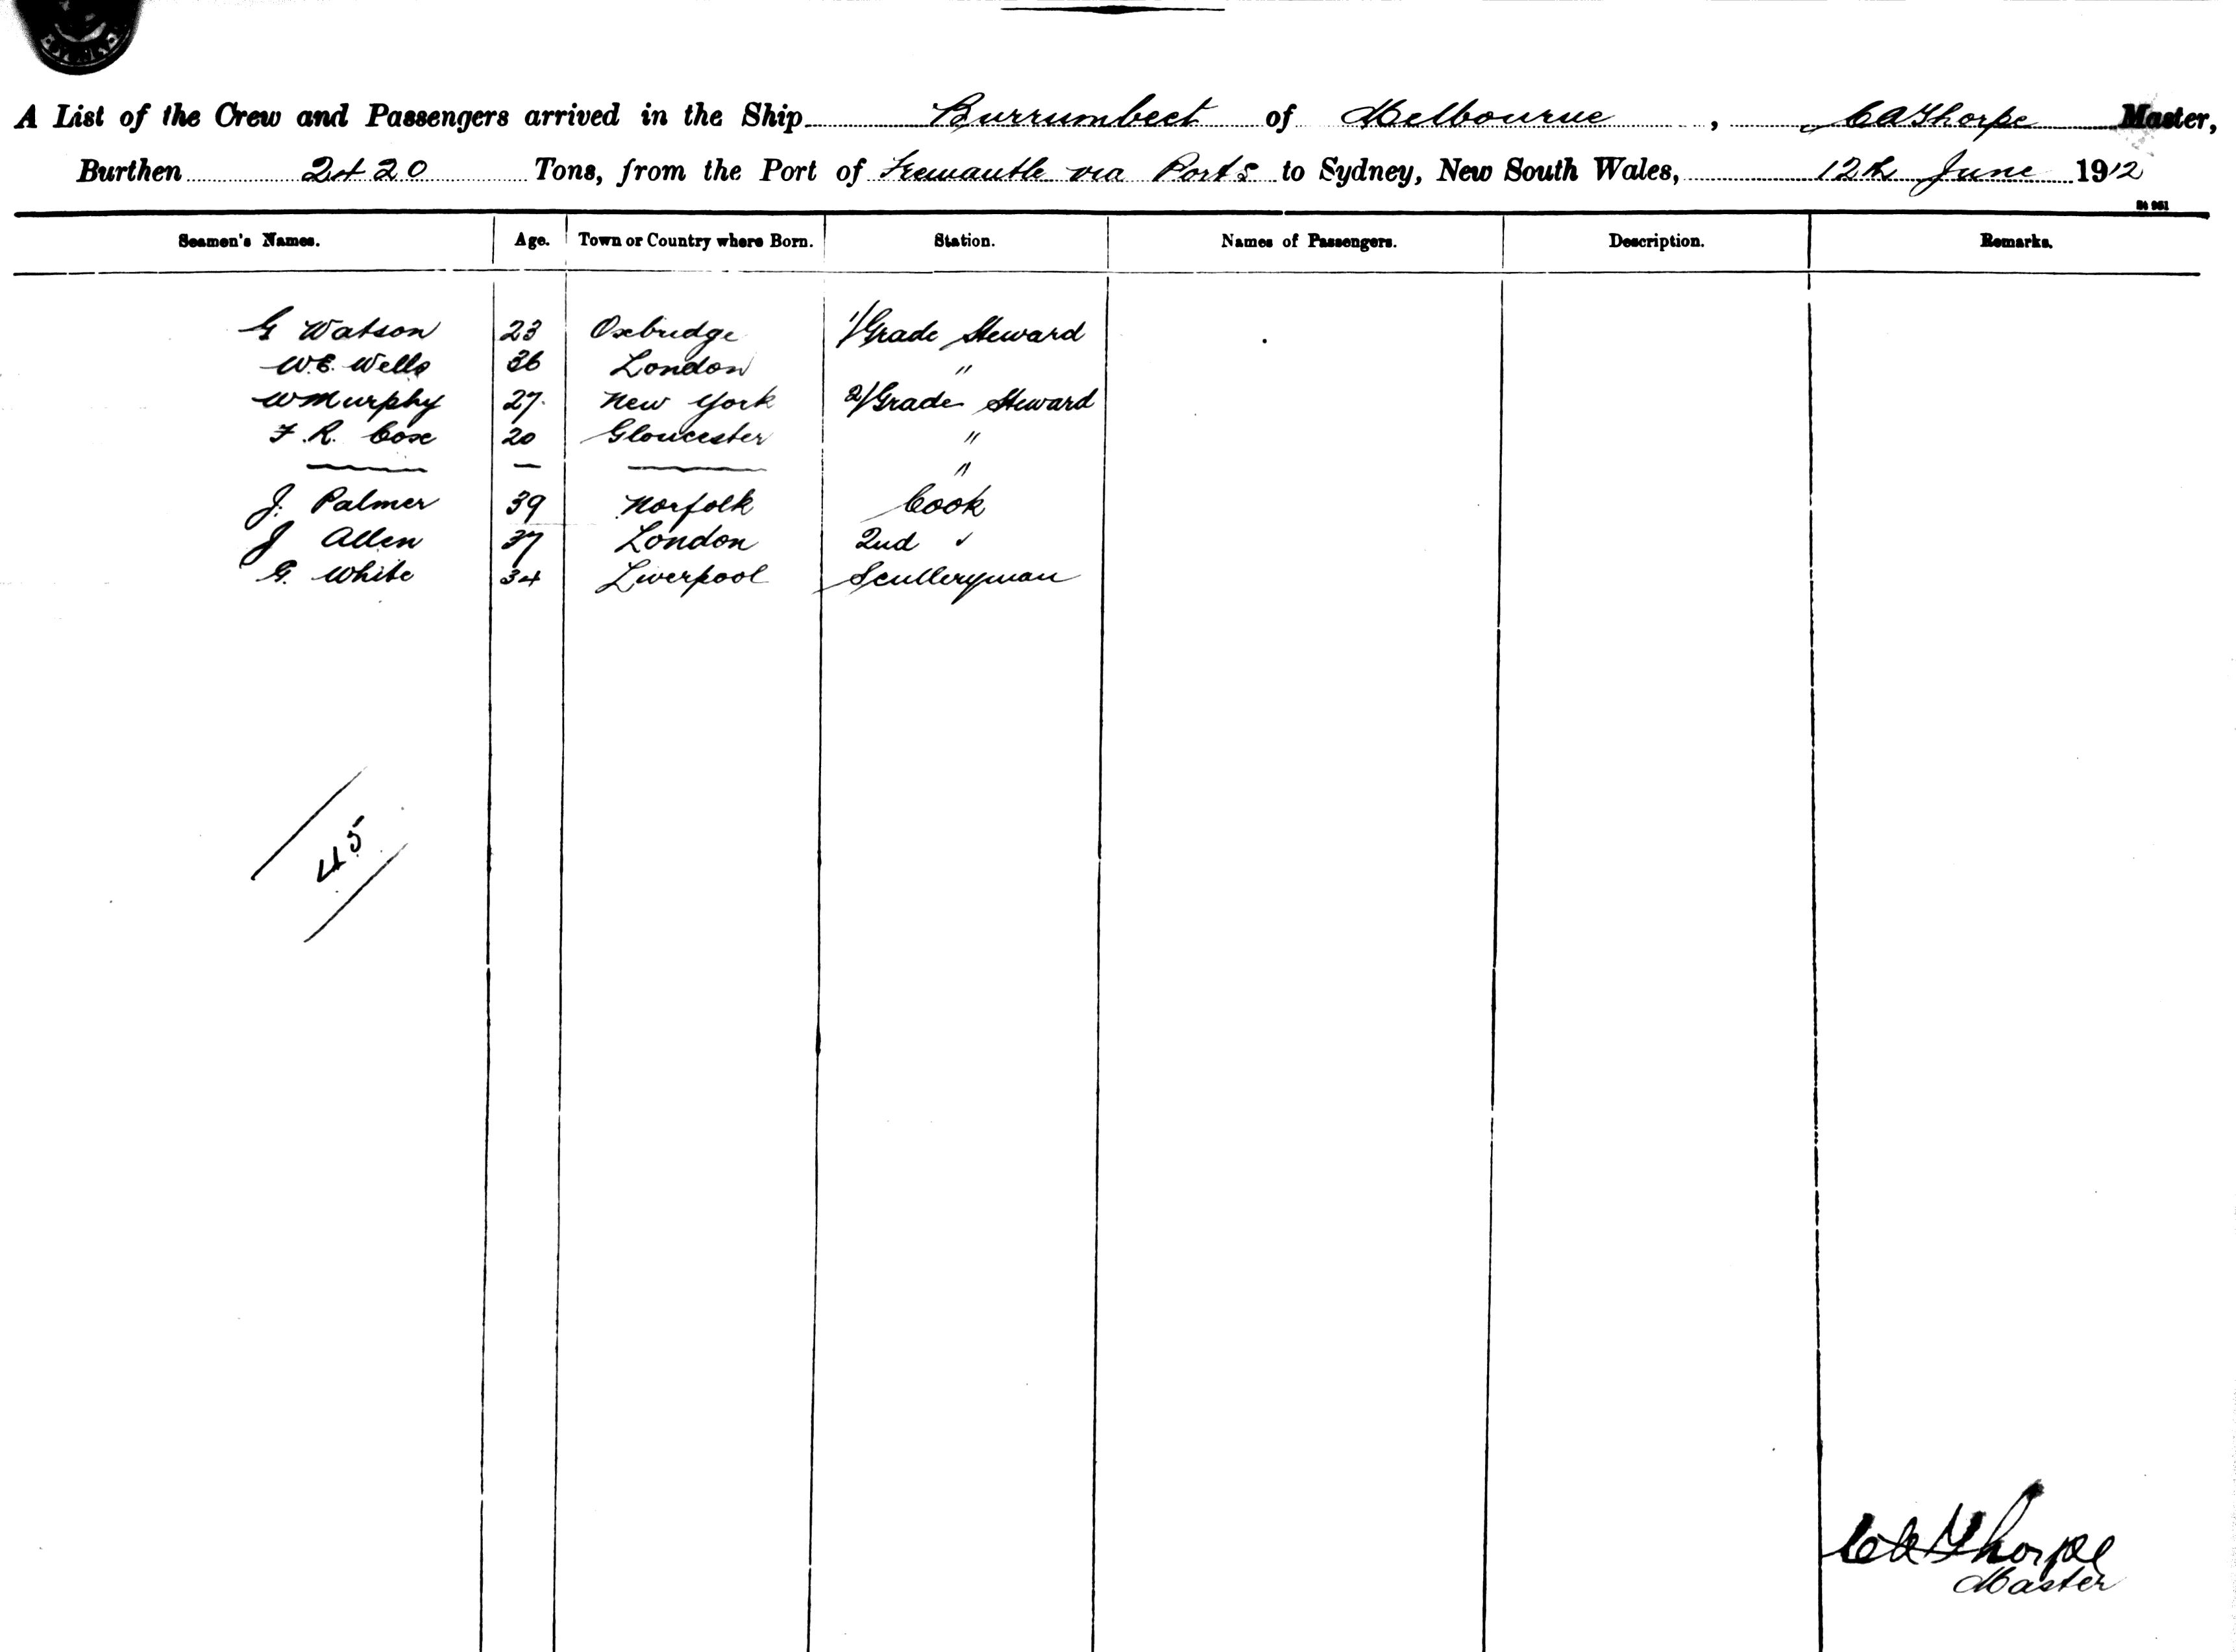 A List of the Crew and Passengers arrived in the Ship Burrumbeet of Melbourne, C A Thorpe Master,
Burthen 2420 Tons, from the Port of Fremantle via Ports to Sydney, New South Wales, 12th June 1912
Seamen's Names. Age. Town or Country where Born. Station. Names of Passengers. Description. Remarks.
G Watson 23 Oxbridge 1/Grade Steward
W.E. Wells 36 London "
W Murphy 27 New York 2/Grade Steward
F. R. Cox 20 Gloucester "
— — — "
J. Palmer 39 Norfolk Cook
J Allen 37 London 2nd "
G. White 34 Liverpool Sculleryman
45
C A Thorpe
Master